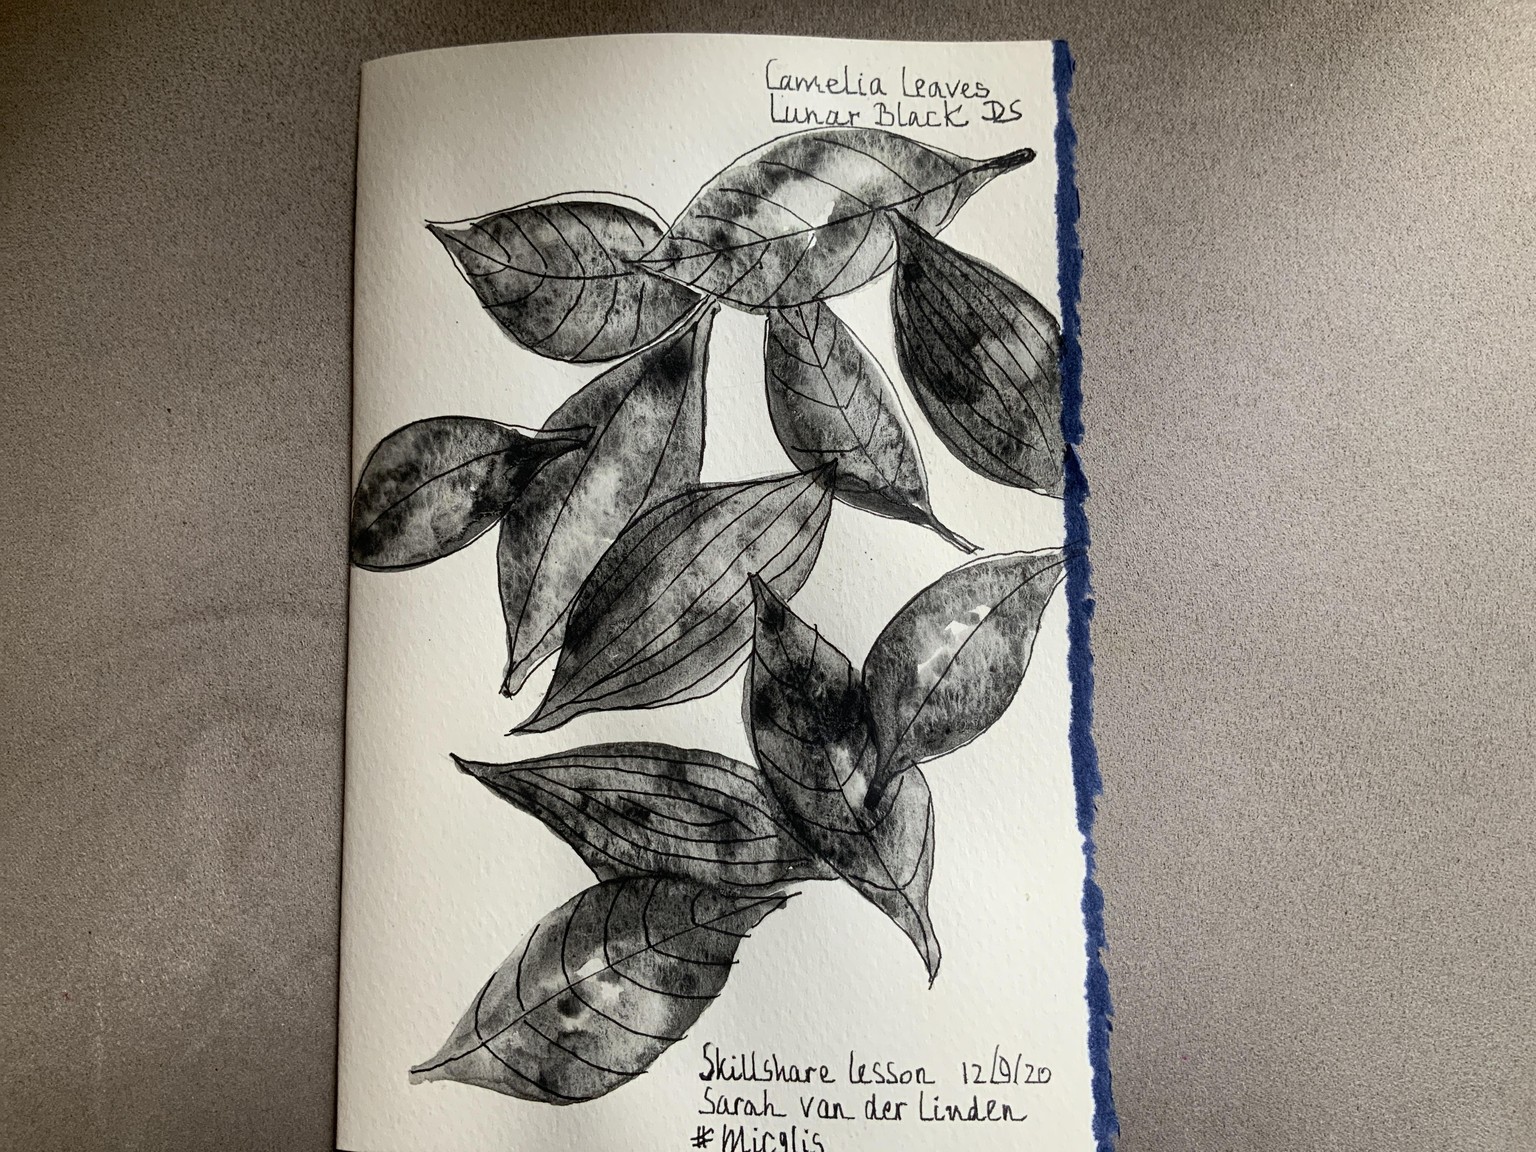 Camelia Leaves
Lunar Black DS
Skillshare lesson 12/9/20
Sarah van der Linden